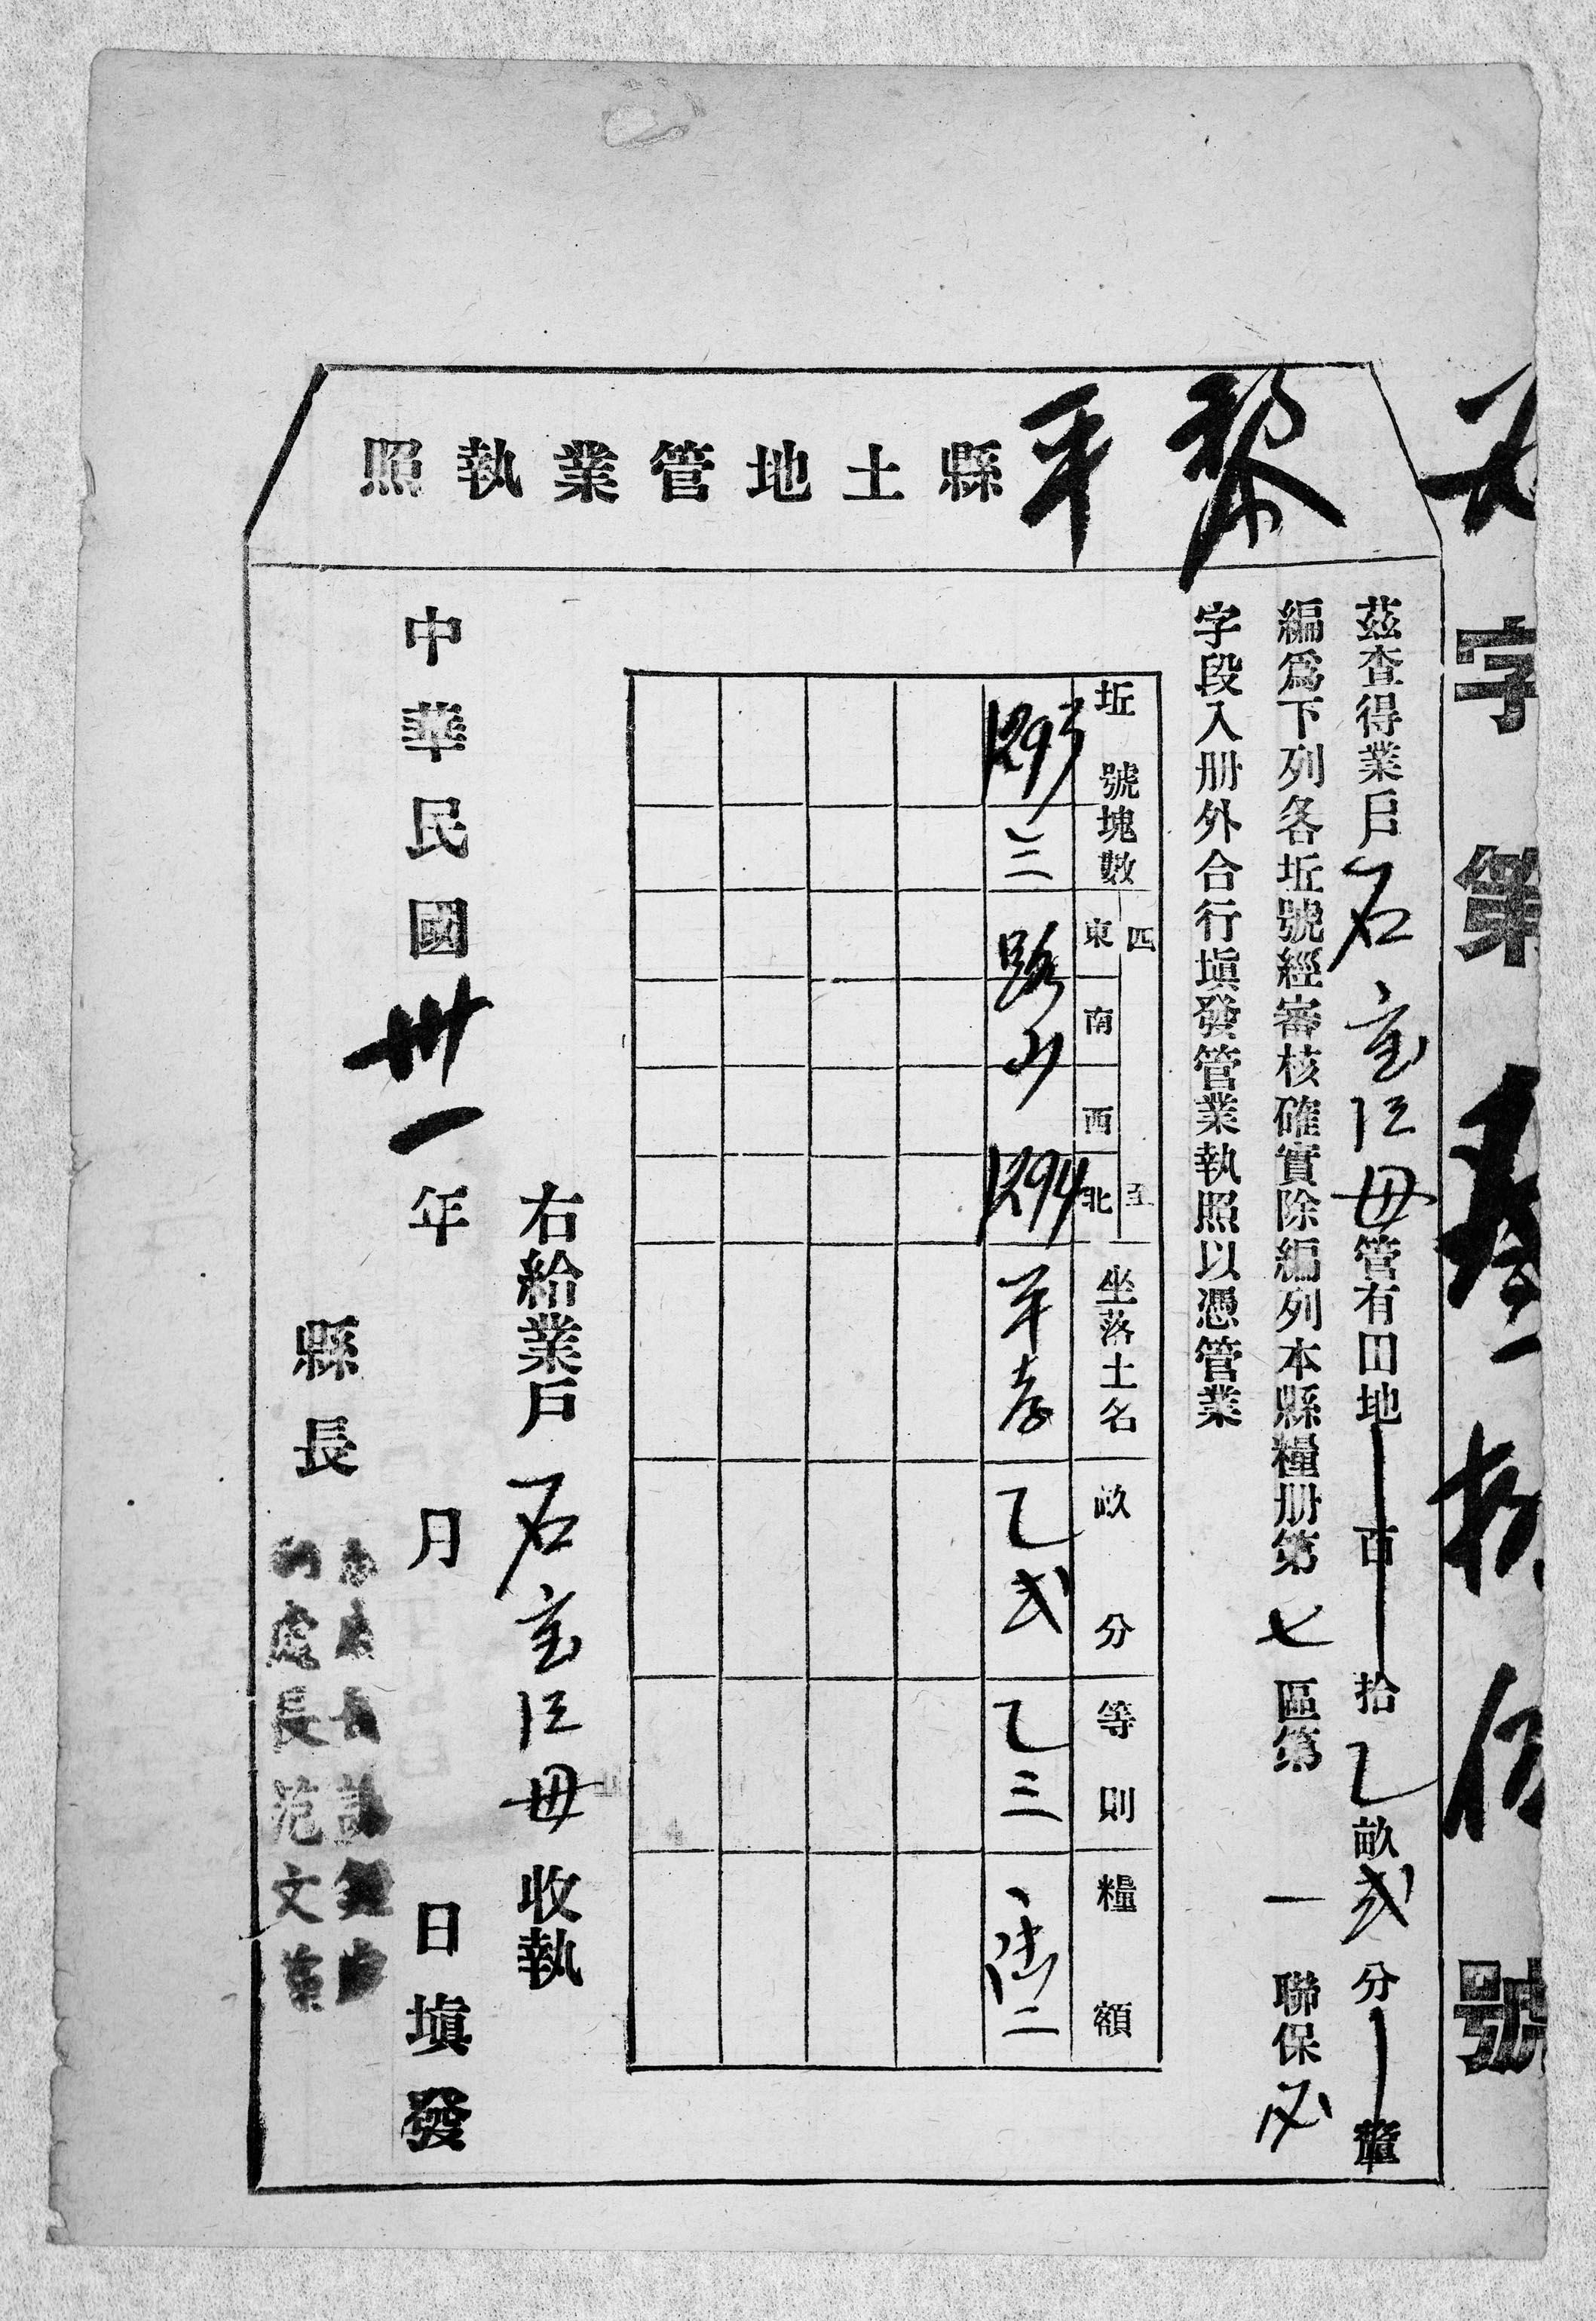 字第 拾 號
黎平縣土地管業執照
茲查得業戶石 母管有田地百拾乙畝弍分釐
編爲下列各坵號經審核確實除編列本縣糧册第七區第一聯保
字段入册外合行塡發管業執照以憑管業
坵號 塊數 四至 東 南 西 北 坐落土名 畝分 等則 糧額
1295 三 路 山 1294 乙弍 乙三 二
右給業戶石 母收執
中華民國卅一年 月 日塡發
縣長
處長范文